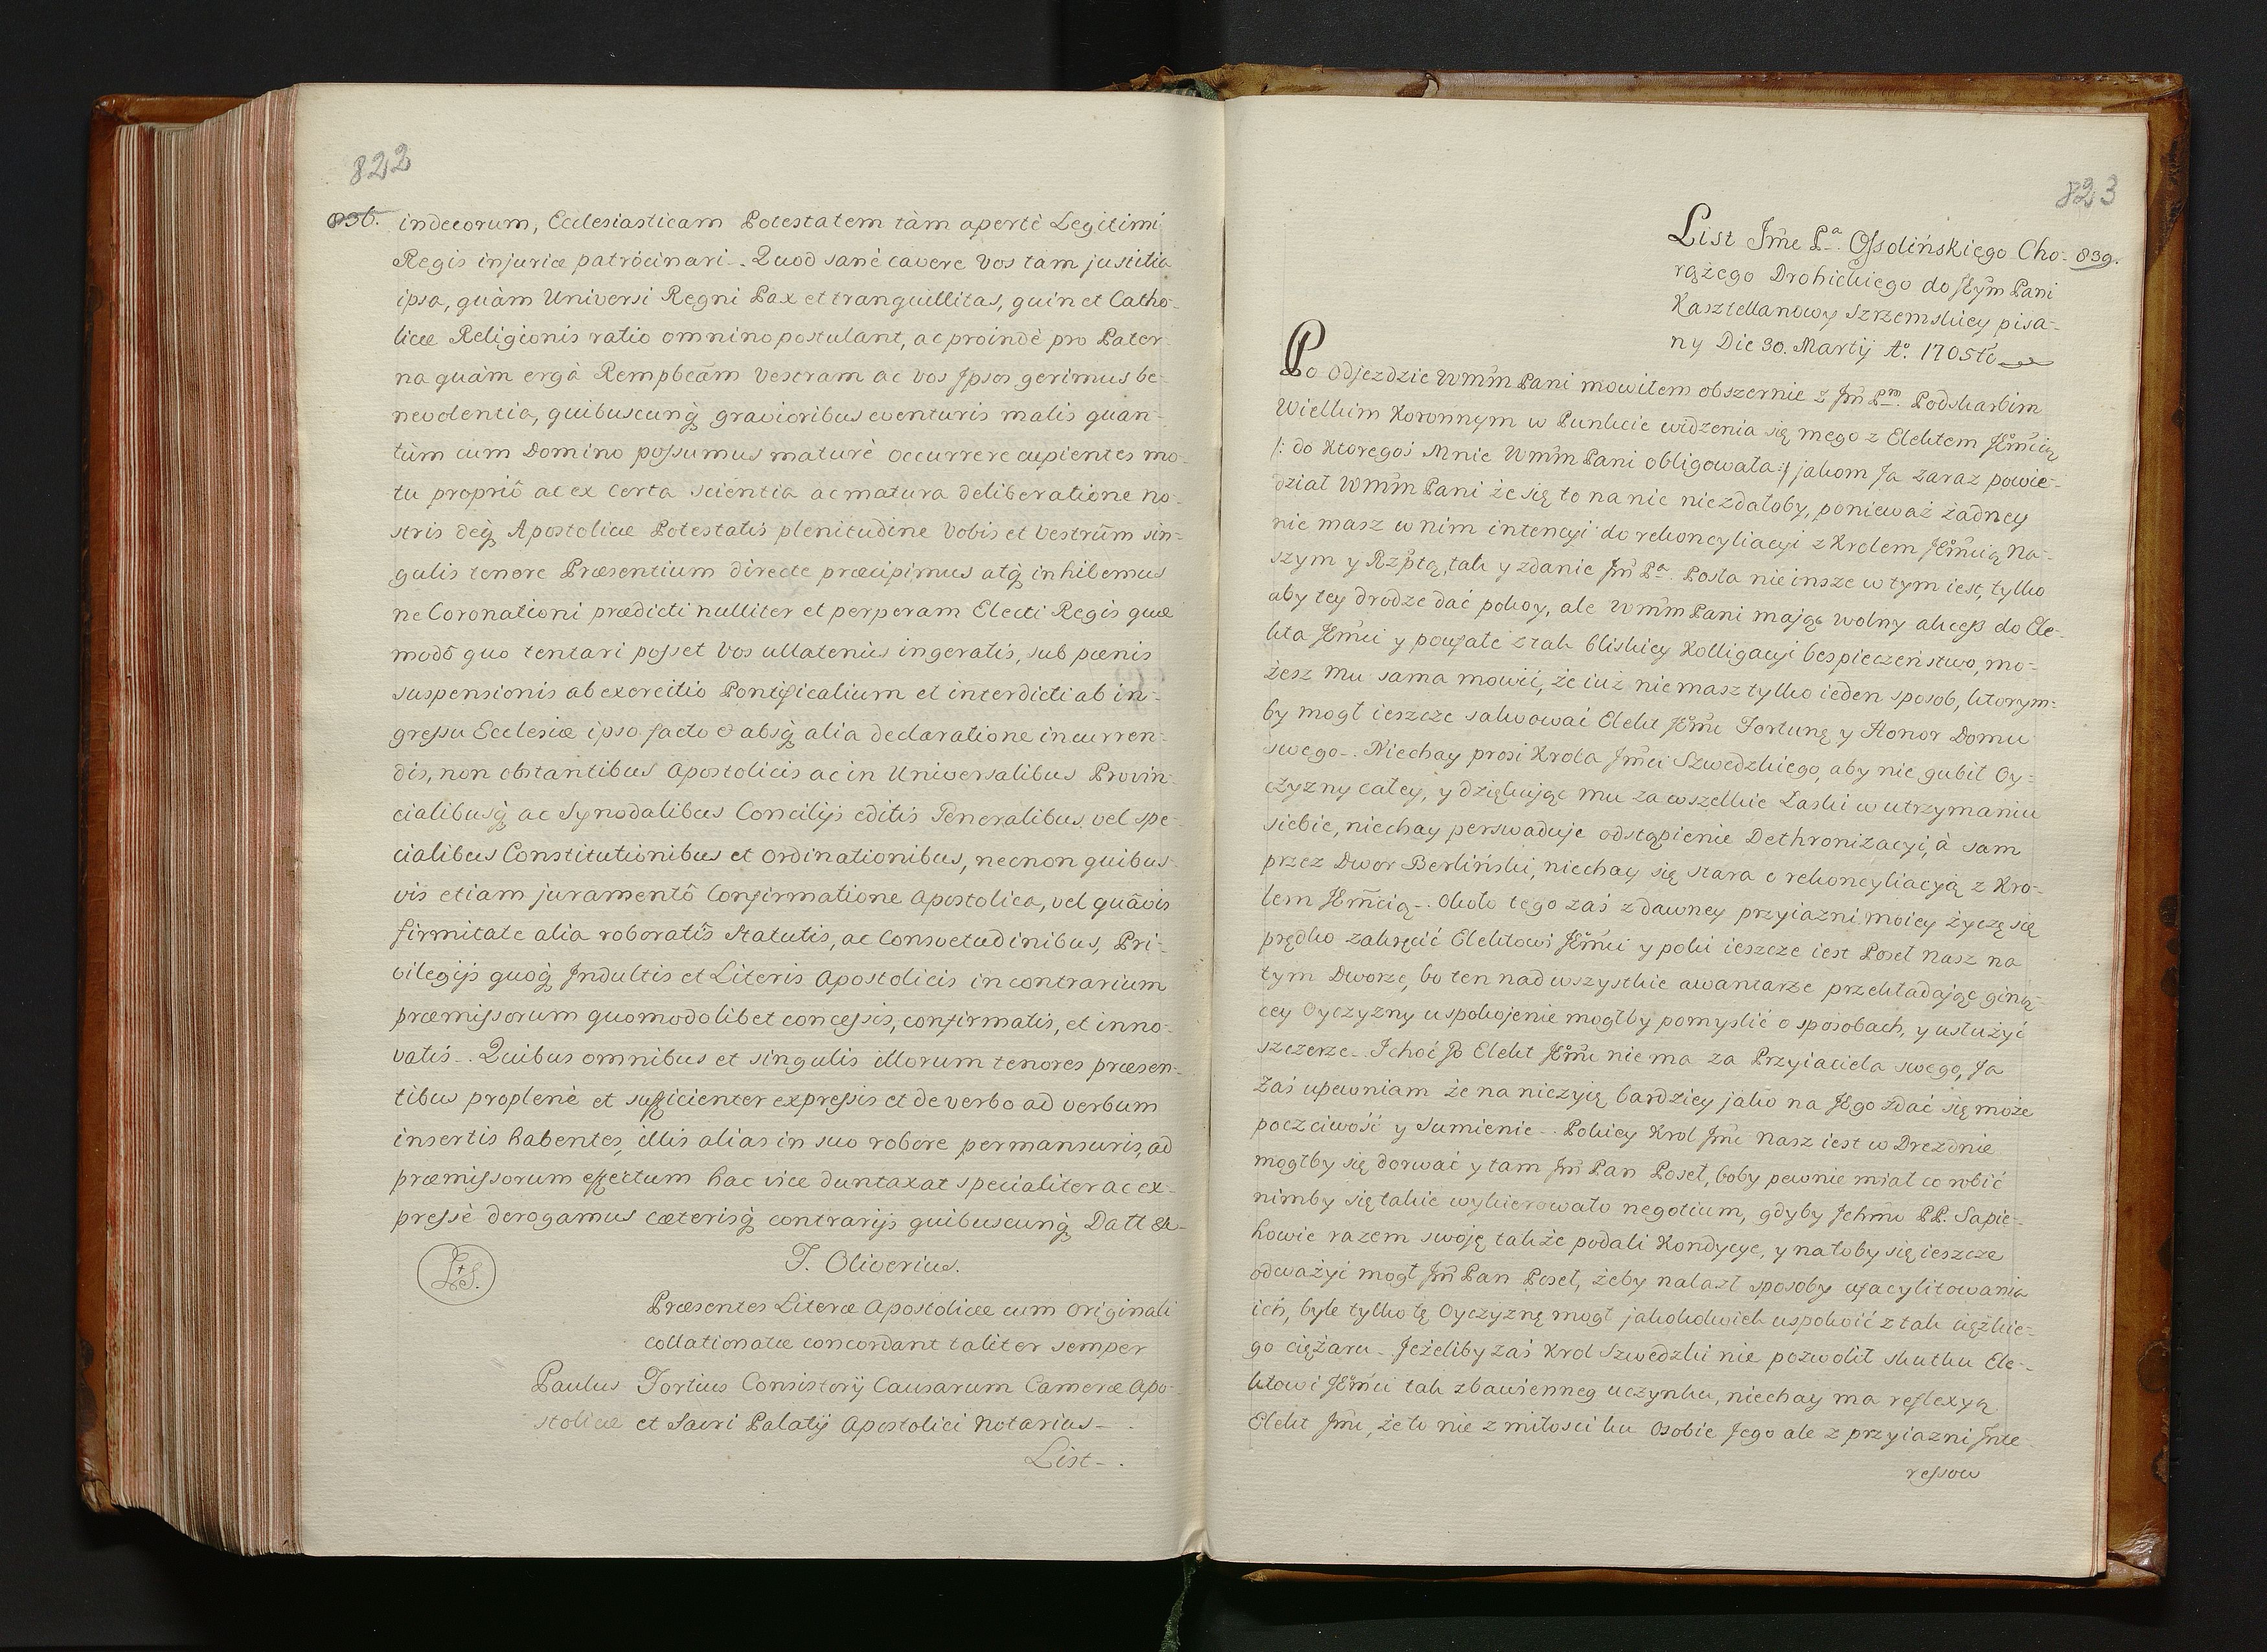 822
836. indecorum, Ecclesiasticam Potestatem tàm apertè Legitimi
Regis injuriæ patrócinari. Quod sanè cavere Vos tàm justitia
ipsa, quàm Universi Regni Pax et tranquillitas, quin et Catho-
licæ Religionis ratio omnino postulant, ac proindè pro Pater-
na quàm ergà Rempbcãm Vestram ac Vos Ipsos gerimus be-
nevolentia, quibuscunq̃ gravioribus eventuris malis quan-
tùm cum Domino possumus maturè occurrere cupientes mo-
tu propriô ac ex certa scientia ac matura deliberatione no-
stris deq̃ Apostolicæ Potestatis plenitudine Vobis et Vestrûm sin-
gulis tenore Præsentium directe præcipimus atq̃ inhibemus
ne Coronationi prædicti nulliter et perperam Electi Regis quæ
modô quo tentari posset Vos ullatenùs ingeratis, sub pœnis
suspensionis ab exercitio Pontificalium et interdicti ab in-
gressu Ecclesiæ ipso facto & absq̃ alia declaratione incurren-
dis, non obstantibus Apostolicis ac in Universalibus Provin-
cialibusq̃ ac Synodalibus Concilijs editis Generalibus vel spe-
cialibus Constitutionibus et Ordinationibus, necnon quibus-
vis etiam juramentô Confirmatione Apostolica, vel quãvis
firmitate alia roboratîs Statutis, ac Consvetudinibus, Pri-
vilegijs quoq̃ Indultis et Literis Apostolicis in contrarium
præmissorum quomodolibet concessis, confirmatis, et inno-
vatis. Quibus omnibus et singulis illorum tenores præsen-
tibus proplenè et sufficienter expressis et de verbo ad verbum
insertis habentes, illis alias in suo robore permansuris, ad
præmissorum effectum hac vice duntaxat specialiter ac ex-
pressè derogamus cæterisq̃ contrarijs quibuscunq̃ Datt &
L+S.
F. Oliverius.
Præsentes Literæ Apostolicæ cum originali
collationatæ concordant taliter semper
Paulus Fortius Consistorij Causarum Cameræ Apo-
stolicæ et Sacri Palatij Apostolici Notarius
List
823
List Jm̃c P.ª Ossolińskiego Cho- 839.
rążego Drohickiego do JEy͠m Pani
Kasztellanowy Szrzemskiey pisa-
ny Die 30. Martij Aº. 1705to
Po Odjezdzie Wm͠m Pani mowiłem obszernie z Jm̃ P.m Podskarbim
Wielkim Koronnym w Punkcie widzenia się mego z Elektem JEm̃cią
/: do Ktoregoś Mnie Wm͠m Pani obligowała :/ jakom Ja zaraz powie-
dział Wm͠m Pani że się to na nic niezdałoby, ponieważ żadney
nie masz w nim intencyi do rekoncyliacyi z Krolem JEm̃cią Na-
szym y Rzptą, tak y zdanie Jm̃ P.ª Posła nie insze w tym iest, tylko
aby tey drodze dać pokoy, ale Wm͠m Pani mając wolny akcess do Ele-
kta JEm̃ci y poufałe z tak bliskiey Kolligacyi bespieczeństwo, mo-
żesz mu sama mowić, że iuż nie masz tylko ieden sposob, ktorym-
by mogł ieszcze salwować Elekt JEm̃c Fortunę y Honor Domu
swego. Niechay prosi Krola Jm̃ci Szwedzkiego, aby nie gubił Oy-
czyzny całey, y dziękując mu za wszelkie Łaski w utrzymaniu
siebie, niechay perswaduje odstąpienie Dethronizacyi, à sam
przez Dwor Berliński, niechay się stara o rekoncyliacyą z Kro-
lem JEm̃cią. Około tego zaś z dawney przyiazni moiey życzę się
prędko zakręcić Elektowi JEm̃ci y poki ieszcze iest Poseł nasz na
tym Dworze, bo ten nad wszystkie awantarze przekładając giną-
cey Oyczyzny uspokojenie mogłby pomyslić o sposobach, y usłużyć
szczerze. I choć Go Elekt JEm̃c nie ma za Przyiaciela swego, Ja
Zaś upewniam że na niczyię bardziey jako na JEgo zdać się może
poczciwość y sumienie. Pokiey Krol Jm̃c nasz iest w Drezdnie
mogłby się dorwać y tam Jm̃ Pan Poseł, boby pewnie miał co robić
nimby się takie wykierowało negotium, gdyby Jchm̃c PP. Sapie-
howie razem swoję także podali Kondycye, y natoby się ieszcze
odważyć mogł Jm̃ Pan Poseł, żeby nalazł sposoby ufacylitowania
ich, byle tylko tę Oyczyznę mogł jakokolwiek uspokoić z tak ciężkie-
go ciężaru. Jeżeliby zaś Krol Szwedzki nie pozwolił skutku Ele-
ktowi JEm̃ci tak zbawienneg uczynku, niechay ma reflexyą
Elekt Jm̃c, że to nie z miłosci ku Osobie Jego ale z przyiazni Inte-
ressow